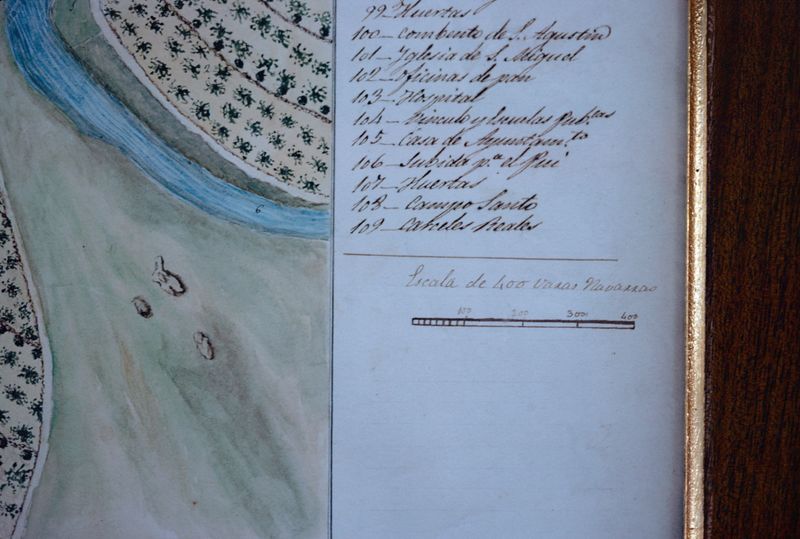 99 - Huertas
100 - combinto de S. Agustin
101 - Yglesia de S. Miguel
102 - oficinas de pan
103 - Hospital
104 - Vinculo y Escuelas Pub.cas
105 - Casa de Ayuntam.to
106 - Subida p.a el Pui
107 - Huertas
108 - Campo Santo
109 - Carceles Reales
Escala de 400 varas Navarras
100 200 300 400
6